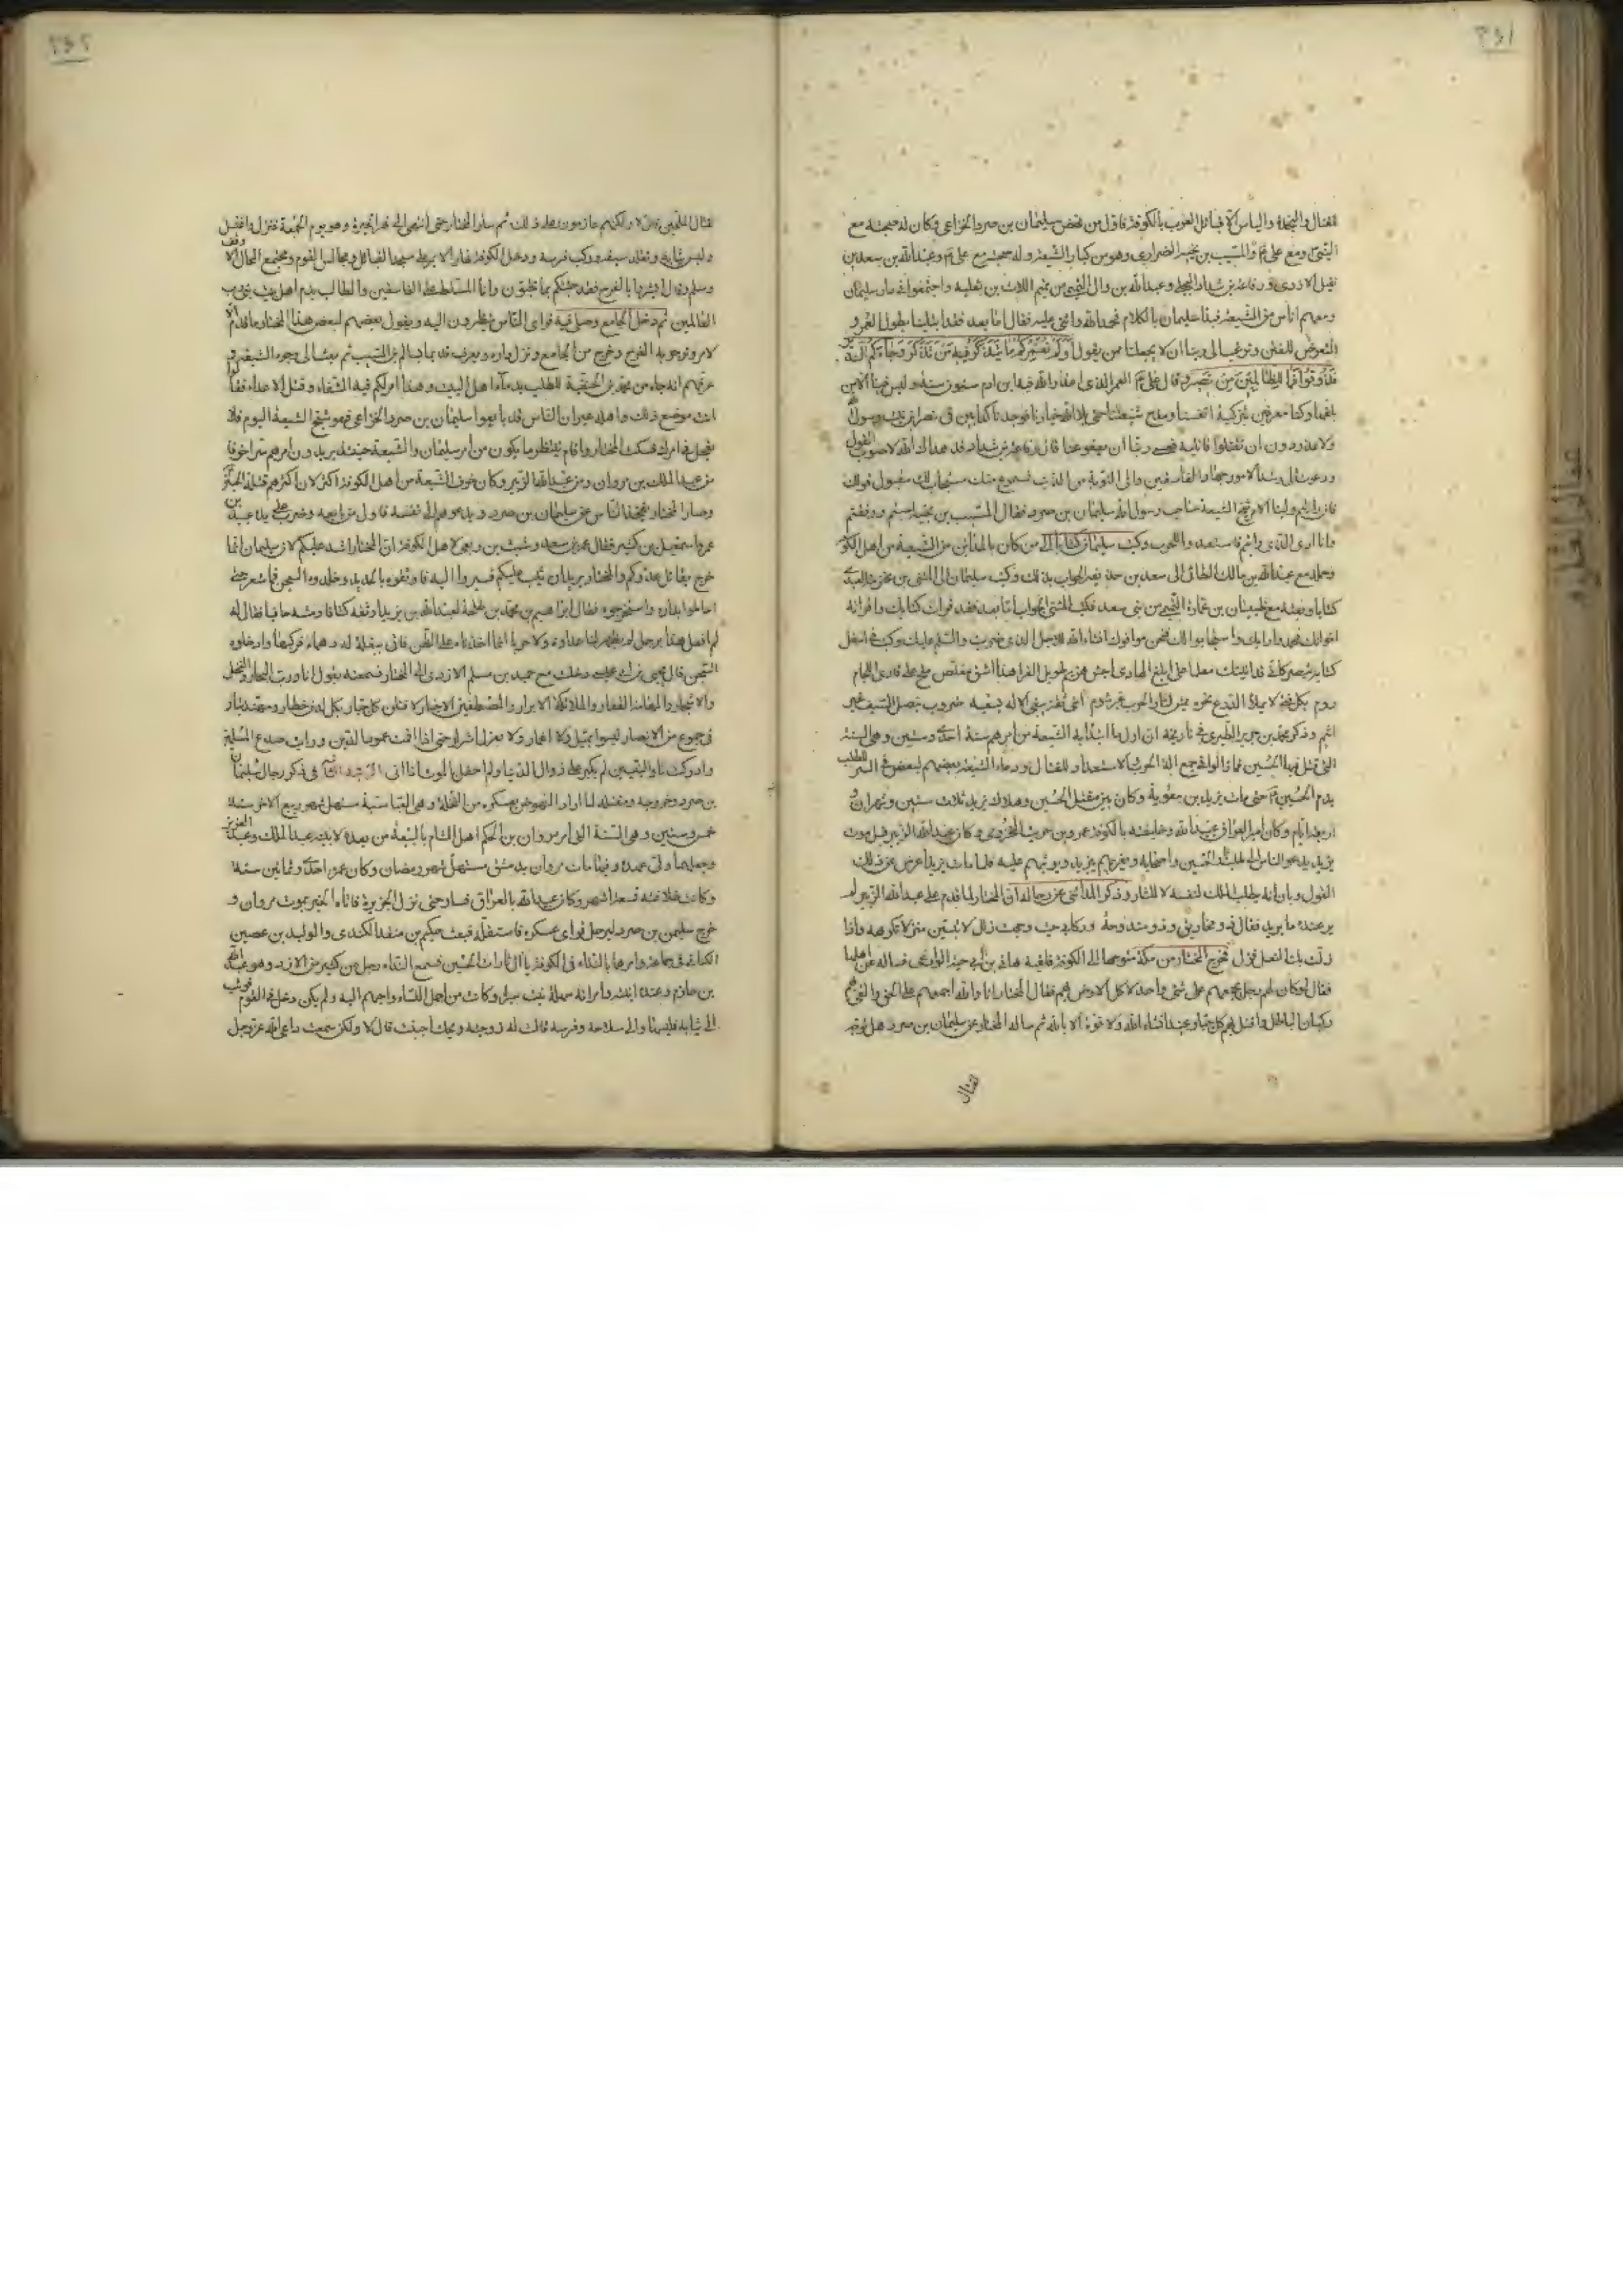 ٣٤١
للقتال والنجدة والباس الا قبائل العرب بالكوفة فاول من نهض سليمان بن صرد الخزاعي وكان له صحبة مع
النبي ومع علي ع والمسيب بن نجبة الفزاري وهو من كبار الشيعة وله صحبة مع علي ع وعبد الله بن سعد بن
نفيل الازدي ورفاعة بن شداد البجلي وعبد الله بن وال التيمي من تيم اللات بن ثعلبة واجتمعوا في دار سليمان
ومعهم اناس من الشيعة فبدأ سليمان بالكلام فحمد الله واثنى عليه فقال اما بعد فقد ابتلينا بطول العمر و
التعرض للفتن ونرغب الى ربنا ان لا يجعلنا ممن يقول اولم نعمركم ما يتذكر فيه من تذكر وجاءكم النذير
فذوقوا فما للظالمين من نصير وقال علي ع العمر الذي اعذر الله فيه ابن ادم ستون سنة وليس فينا الا من
بلغها وكنا مغرمين بتزكية انفسنا ومدح شيعتنا حتى بلا الله خيارنا فوجدنا كذابين في نصر ابن بنت رسول الله
ولا عذر دون ان تقتلوا قاتليه فعسى ربنا ان يعفو عنا قال رفاعة بن شداد قد هداك الله لاصوب القول
ودعوت الى ارشد الامور جهاد الفاسقين والى التوبة من الذنب فمسموع منك مستجاب لك مقبول قولك
فان رايتم ولينا الامر شيخ الشيعة صاحب رسول الله سليمان بن صرد فقال المسيب بن نجبة اصبتم ووفقتم
وانا ارى الذي رايتم فاستعدوا للحرب وكتب سليمان كتابا الى من كان بالمدائن من الشيعة من اهل الكوفة
وحمله مع عبد الله بن مالك الطائي الى سعد بن حذيفة الجواب بذلك وكتب سليمان الى المثنى بن مخرمة العبدي
كتابا وبعثه مع ظبيان بن عمارة التميمي من بني سعد فكتب المثنى الجواب اما بعد فقد قرات كتابك واقراته
اخوانك فحمدوا رايك واستجابوا لك فنحن موافوك انشاء الله للاجل الذي ضربت والسلم عليك وكتب في اسفل
كتابه تبصر كاني قد اتيتك معلما على ابلغ الهادي اجش هزيم طويل القرا نهد اشق مقلص ملح على قاري اللجام
بكل فتى لا يملا الدرع نحره
اثيم وذكر محمد بن جرير الطبري في تاريخه ان اول ما ابتدا به الشيعة من امرهم سنة احدى وستين وهي السنة
التي قتل فيها الحسين فما زالوا في جمع الة الحرب والاستعداد للقتال ودعاء الشيعة بعضهم لبعض في السر للطلب
بدم الحسين ع حتى مات يزيد بن معوية وكان بين مقتل الحسين وهلاك يزيد ثلاث سنين وشهران و
اربعة ايام وكان امير العراق عبيد الله وخليفته بالكوفة عمرو بن حريث المخزومي وكان عبد الله الزبير قبل موت
يزيد يدعو الناس الى طلب ثار الحسين واصحابه ويغريهم بيزيد ويوثبهم عليه فلما مات يزيد اعرض عن ذلك
القول وبان انه يطلب الملك لنفسه لا للثار وذكر المدائني عن رجاله ان المختار لما قدم على عبد الله الزبير لم
ير عنده ما يريد فقال ذو مخاريق وذو مندوحة وركابي حيث وجهت ذلل لا تبيتن منزلا تكرهه واذا
زلت بك النعل فزل فخرج المختار من مكة متوجها الى الكوفة فلقيه هاني بن ابي حية الوادعي فساله عن اهلها
فقال لو كان لهم رجل يجمعهم على شيء واحد لاكل الارض بهم فقال المختار انا والله اجمعهم على الحق والقى بهم
ركبان الباطل واقتل بهم كل جبار عنيد انشاء الله ولا قوة الا بالله ثم ساله المختار عن سليمان بن صرد هل توجه
لقتال
٣٤٢
لقتال المحلين قال لا ولكنهم عازمون على ذلك ثم سار المختار حتى انتهى الى نهر الحيرة وهو يوم الجمعة فنزل واغتسل
ولبس ثيابه وتقلد سيفه وركب فرسه ودخل الكوفة نهارا لا يمر على مسجد القبائل ومجالس القوم ومجتمع المحال الا وقف
وسلم وقال ابشروا بالفرج فقد جئتكم بما تحبون وانا المسلط على الفاسقين والطالب بدم اهل بيت نبي رب
العالمين ثم دخل الجامع وصلى فيه فراى الناس ينظرون اليه ويقول بعضهم لبعض هذا المختار ما قدم الا
لامر ونرجو به الفرج وخرج من الجامع ونزل داره ويعرف قديما بسالم بن المسيب ثم بعث الى وجوه الشيعة و
عرفهم انه جاء من محمد بن الحنفية للطلب بدماء اهل البيت وهذا امر لكم فيه الشفاء وقتل الاعداء فقالوا
انت موضع ذلك واهله غير ان الناس قد بايعوا سليمان بن صرد الخزاعي فهو شيخ الشيعة اليوم فلا
تعجل في امرك فسكت المختار واقام ينتظر ما يكون من امر سليمان والشيعة حينئذ يريدون امرهم سرا خوفا
من عبد الملك بن مروان ومن عبد الله الزبير وكان خوف الشيعة من اهل الكوفة اكثر لان اكثرهم قتلة الحسين
وصار المختار يفخذ الناس عن سليمان بن صرد ويدعوهم الى نفسه فاول من بايعه وضرب على يده عبيدة بن
عمر واسمعيل بن كثير فقال عمر بن سعد وشبث بن ربعي لاهل الكوفة ان المختار اشد عليكم لان سليمان انما
خرج يقاتل عدوكم والمختار يريد ان يثب عليكم فسيروا اليه فاوثقوه بالحديد وخلدوه السجن فما شعر حتى
احاطوا بداره واستخرجوه فقال ابراهيم بن محمد بن طلحة لعبد الله بن يزيد اوثقه كتافا ومشه حافيا فقال له
لم افعل هذا برجل لم يظهر لنا عداوة ولا حربا انما اخذناه على الظن فاتي ببغلة له دهماء فركبها وادخلوه
السجن قال يحيى بن ابي عيسى دخلت مع حميد بن مسلم الازدي الى المختار فسمعته يقول اما ورب البحار والنخل
والاشجار والمهامه القفار والملائكة الابرار والمصطفين الاخيار لاقتلن كل جبار بكل لدن خطار ومهند بتار
في جموع من الانصار ليسوا بميل ولا اغمار ولا بعزل اشرار حتى اذا اقمت عمود الدين ورايت صدع المسلمين
وادركت ثار النبيين لم يكبر علي زوال الدنيا ولم احفل بالموت اذا اتى المرتبة الثانية في ذكر رجال سليمان
بن صرد وخروجه ومقتله لما اراد النهوض بعسكره من النخيلة وهي العباسية مستهل شهر ربيع الاخر سنة
خمس وستين وهي السنة التي امر مروان بن الحكم اهل الشام بالبيعة من بعده لابنيه عبد الملك وعبد العزيز
وجعلهما ولي عهده وفيها مات مروان بدمشق مستهل شهر رمضان وكان عمره احدى وثمانين سنة
وكانت خلافته تسعة اشهر وكان عبيد الله بالعراق فسار حتى نزل الجزيرة فاتاه الخبر بموت مروان و
خرج سليمن بن صرد ليرحل فراى عسكره فاستقله فبعث حكيم بن منقذ الكندي والوليد بن عصين
الكناني في جماعة وامرهما بالنداء في الكوفة يا آل ثارات الحسين فسمع النداء رجل من كثير من الازد وهو عبد الله
بن حازم وعنده ابنته وامراته سهلة بنت سبرة وكانت من اجمل النساء واحبهم اليه ولم يكن دخل في القوم فوثب
الى ثيابه فلبسها والى سلاحه وفرسه قالت له زوجته ويحك اجننت قال لا ولكن سمعت داعي الله عز وجل